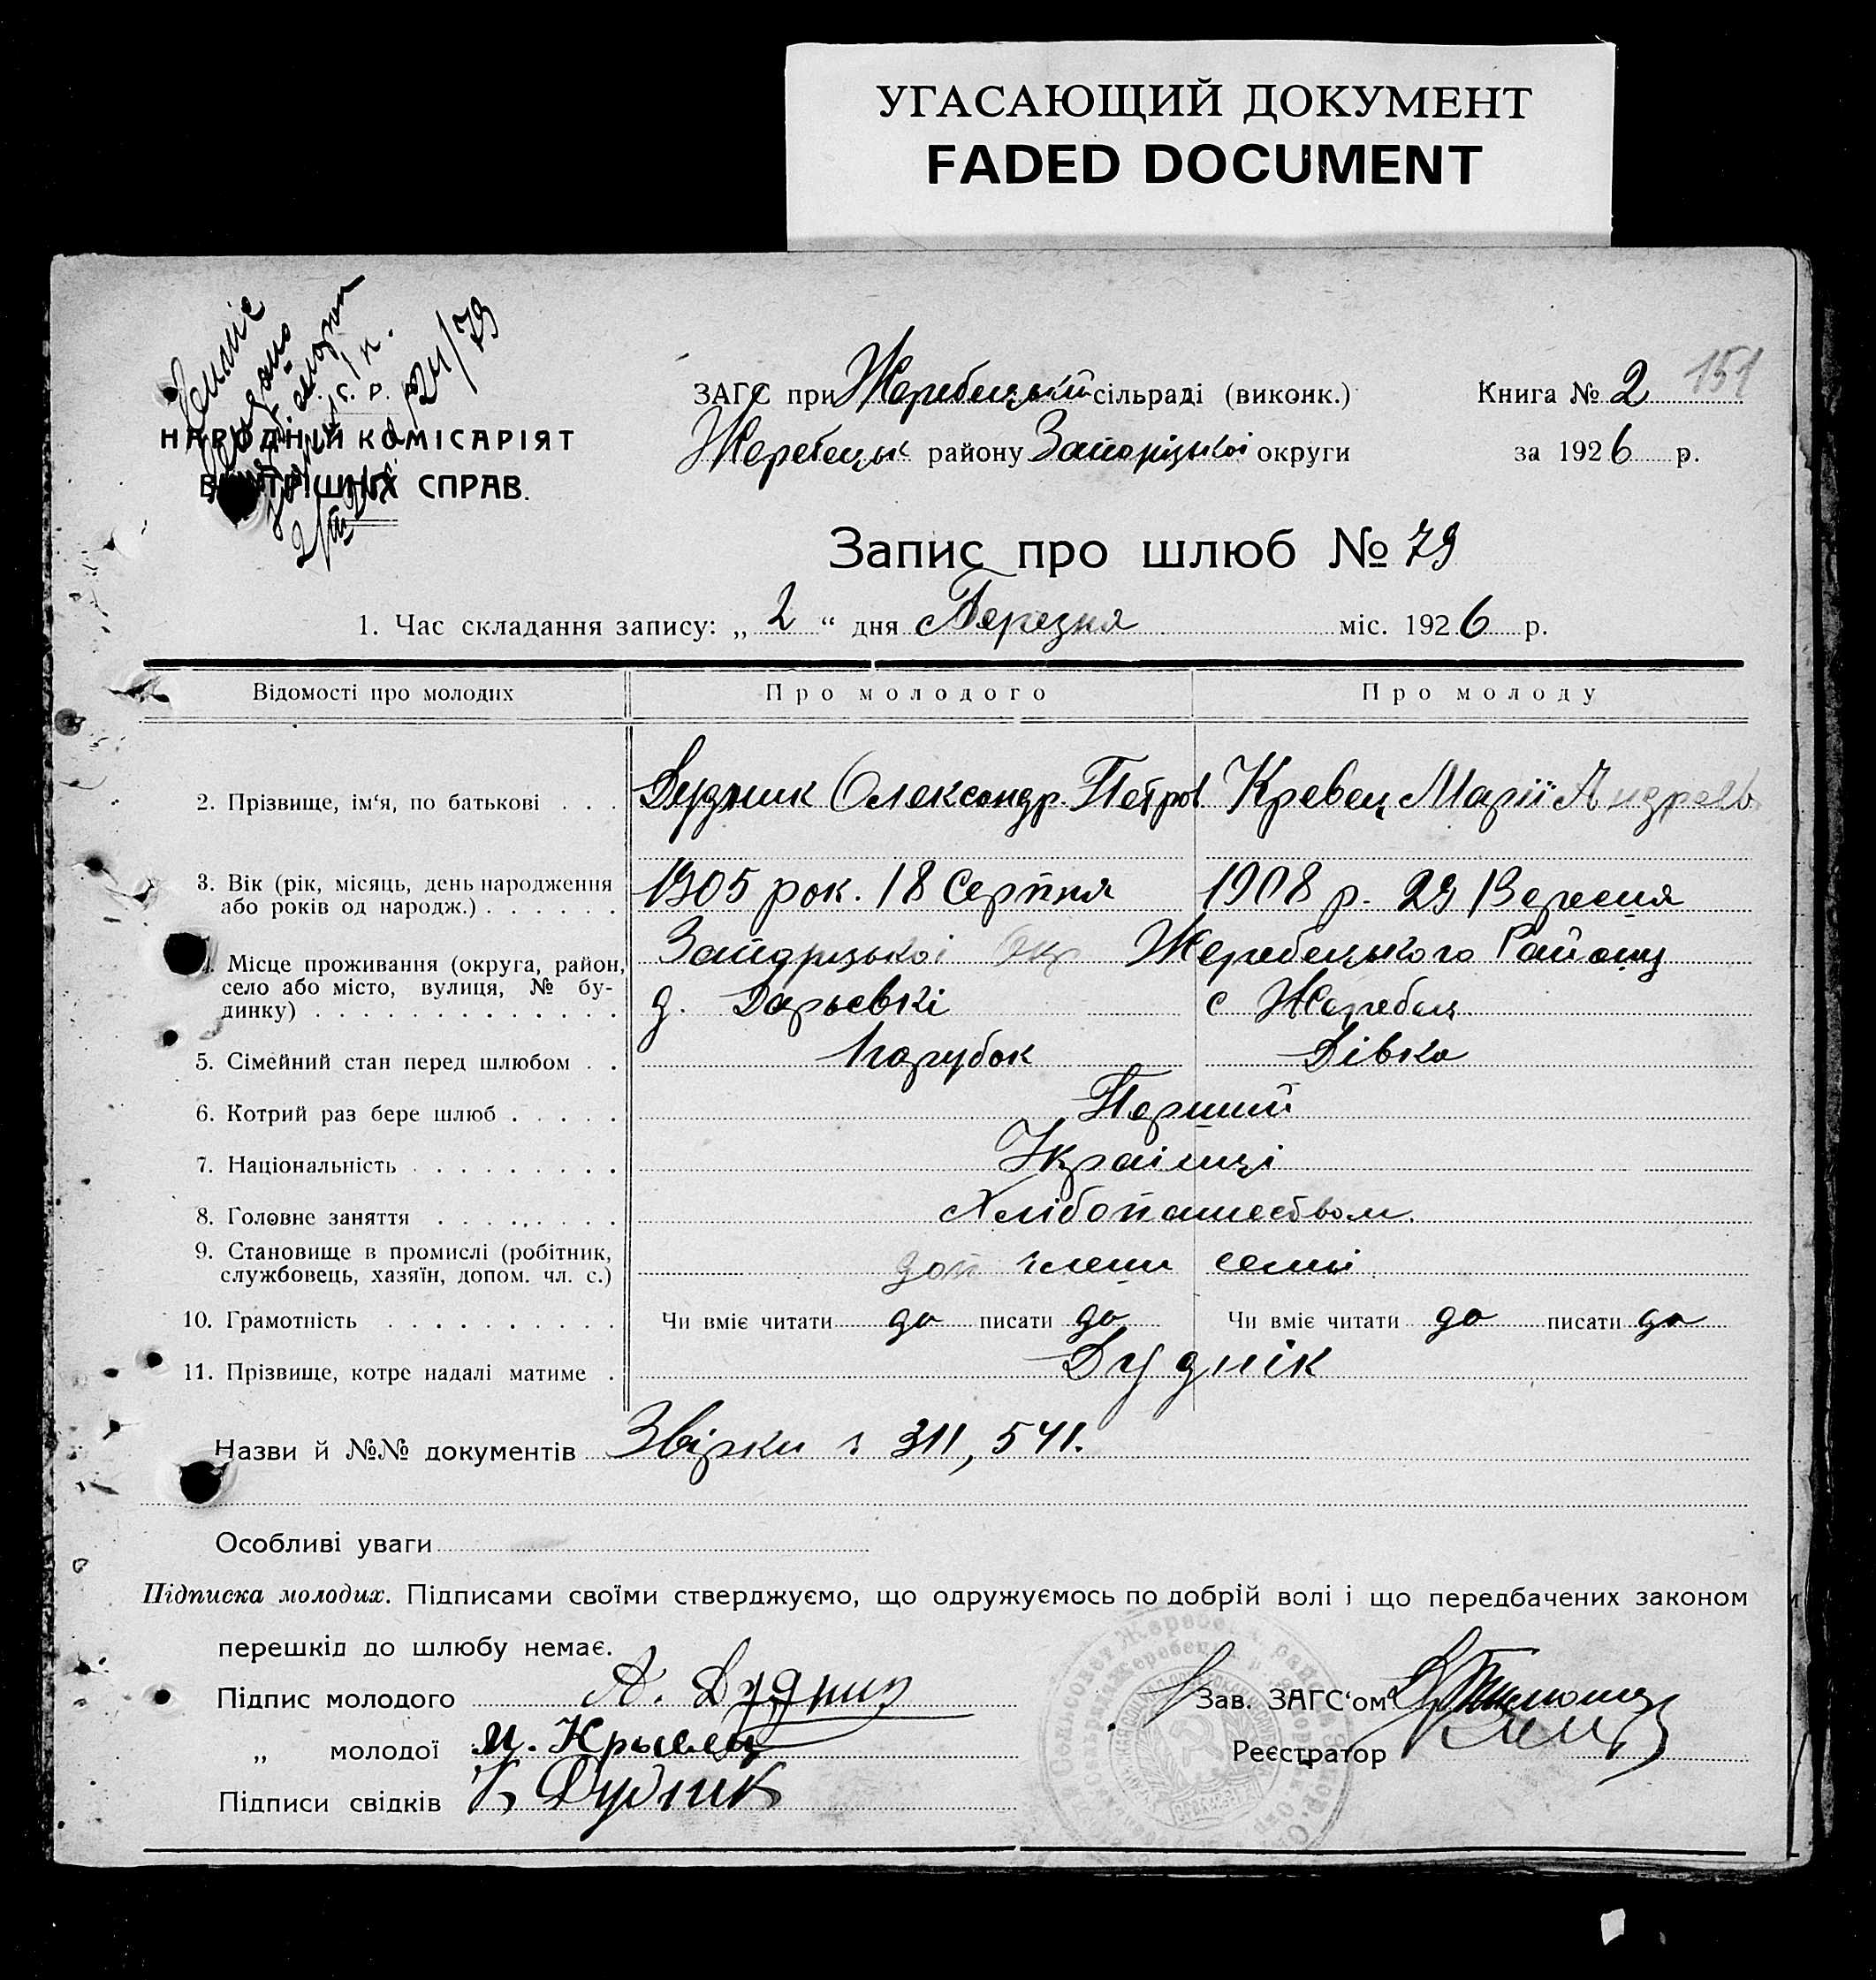 УГАСАЮЩИЙ ДОКУМЕНТ
FADED DOCUMENT
24/79
НАРОДНІЙ КОМІСАРІЯТ
ВНУТРІШНІХ СПРАВ.
ЗАГС при Жеребецькій сільраді (виконк.)
Книга № 2
151
Жеребецьк району Запорізькоі округи
за 1926 р.
Запис про шлюб № 79
1. Час складання запису: „ 2 “ дня Березня міс. 1926 р.
Відомості про молодих
Про молодого
Про молоду
2. Прізвище, ім‘я, по батькові . . .
Дудник Олександр Петров
Кревец Марії Андреєв
3. Вік (рік, місяць, день народження
або років од народж.) . . . . . .
1905 рок. 18 Серпня
1908 р. 29 Вересня
4. Місце проживання (округа, район,
село або місто, вулиця, № бу-
динку) . . . . . . . . . . . . . .
Запорізькоі Окр Жеребецького Району
д. Дарьевкі
с Жеребец
5. Сімейний стан перед шлюбом . .
Парубок
Дівка
6. Котрий раз бере шлюб . . . . .
Перший
7. Національність . . . . . . . . .
Украінці
8. Головне заняття . . . . . . . .
Хлібопашеством.
9. Становище в промислі (робітник,
службовець, хазяїн, допом. чл. с.)
доп члени семьі
10. Грамотність . . . . . . . . . .
Чи вміє читати да писати да
Чи вміє читати да писати да
11. Прізвище, котре надалі матиме .
Дуднік
Назви й №№ документів Звірки 311, 541.
Особливі уваги
Підписка молодих. Підписами своїми стверджуємо, що одружуємось по добрій волі і що передбачених законом
перешкід до шлюбу немає.
Підпис молодого А. Дудник
Зав. ЗАГС‘ом
„ молодої М. Крывец
Реєстратор
Підписи свідків Дудник